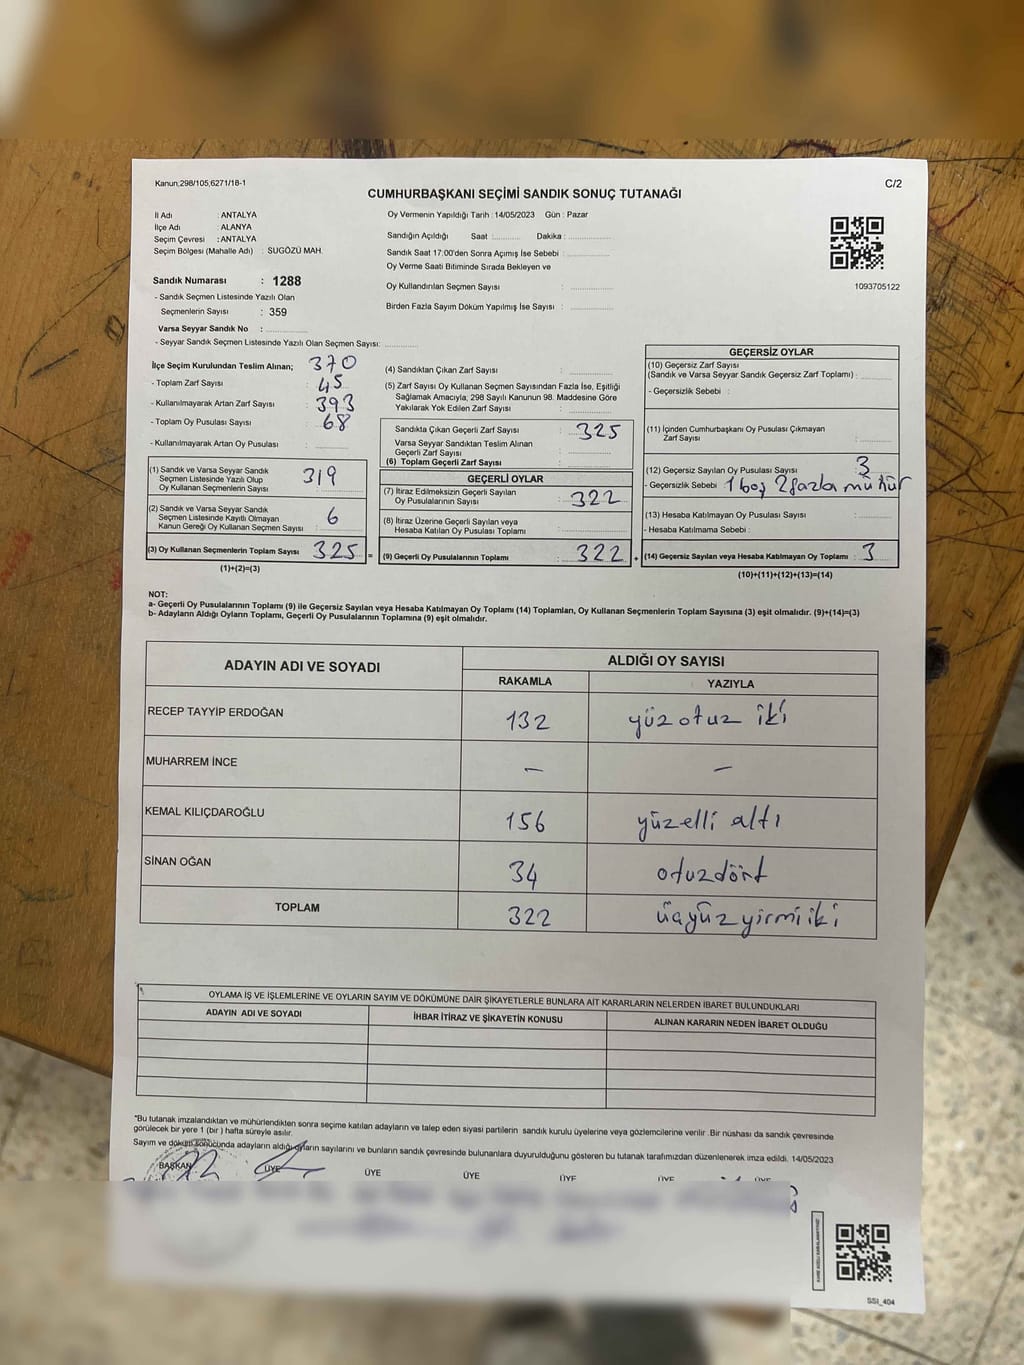 Kanun;298/105,6271/18-1
C/2
CUMHURBAŞKANI SEÇİMİ SANDIK SONUÇ TUTANAĞI
İl Adı : ANTALYA
İlçe Adı : ALANYA
Seçim Çevresi : ANTALYA
Seçim Bölgesi (Mahalle Adı) : SUGÖZÜ MAH.
Oy Vermenin Yapıldığı Tarih : 14/05/2023 Gün : Pazar
Sandığın Açıldığı Saat :............ Dakika :................
Sandık Saat 17:00'den Sonra Açımış İse Sebebi :................
Oy Verme Saati Bitiminde Sırada Bekleyen ve
Oy Kullandırılan Seçmen Sayısı :................
Birden Fazla Sayım Döküm Yapılmış İse Sayısı :................
1093705122
Sandık Numarası : 1288
- Sandık Seçmen Listesinde Yazılı Olan
Seçmenlerin Sayısı : 359
Varsa Seyyar Sandık No :................
- Seyyar Sandık Seçmen Listesinde Yazılı Olan Seçmen Sayısı:............
İlçe Seçim Kurulundan Teslim Alınan;
- Toplam Zarf Sayısı : 370
- Kullanılmayarak Artan Zarf Sayısı : 45
- Toplam Oy Pusulası Sayısı : 393
- Kullanılmayarak Artan Oy Pusulası : 68
(1) Sandık ve Varsa Seyyar Sandık
Seçmen Listesinde Yazılı Olup
Oy Kullanan Seçmenlerin Sayısı : 319
(2) Sandık ve Varsa Seyyar Sandık
Seçmen Listesinde Kayıtlı Olmayan
Kanun Gereği Oy Kullanan Seçmen Sayısı : 6
(3) Oy Kullanan Seçmenlerin Toplam Sayısı : 325 =
(1)+(2)=(3)
(4) Sandıktan Çıkan Zarf Sayısı :................
(5) Zarf Sayısı Oy Kullanan Seçmen Sayısından Fazla İse, Eşitliği
Sağlamak Amacıyla, 298 Sayılı Kanunun 98. Maddesine Göre
Yakılarak Yok Edilen Zarf Sayısı :................
Sandıkta Çıkan Geçerli Zarf Sayısı : 325
Varsa Seyyar Sandıktan Teslim Alınan
Geçerli Zarf Sayısı :................
(6) Toplam Geçerli Zarf Sayısı :................
GEÇERLİ OYLAR
(7) İtiraz Edilmeksizin Geçerli Sayılan
Oy Pusulasının Sayısı : 322
(8) İtiraz Üzerine Geçerli Sayılan veya
Hesaba Katılan Oy Pusulası Toplamı :................
(9) Geçerli Oy Pusulalarının Toplamı : 322 +
GEÇERSİZ OYLAR
(10) Geçersiz Zarf Sayısı
(Sandık ve Varsa Seyyar Sandık Geçersiz Zarf Toplamı) :............
- Geçersizlik Sebebi :
(11) İçinden Cumhurbaşkanı Oy Pusulası Çıkmayan
Zarf Sayısı :............
(12) Geçersiz Sayılan Oy Pusulası Sayısı : 3
- Geçersizlik Sebebi : 1 boş 2 fazla mühür
(13) Hesaba Katılmayan Oy Pusulası Sayısı :............
- Hesaba Katılmama Sebebi :
(14) Geçersiz Sayılan veya Hesaba Katılmayan Oy Toplamı : 3
(10)+(11)+(12)+(13)=(14)
NOT:
a- Geçerli Oy Pusulalarının Toplamı (9) ile Geçersiz Sayılan veya Hesaba Katılmayan Oy Toplamı (14) Toplamları, Oy Kullanan Seçmenlerin Toplam Sayısına (3) eşit olmalıdır. (9)+(14)=(3)
b- Adayların Aldığı Oyların Toplamı, Geçerli Oy Pusulalarının Toplamına (9) eşit olmalıdır.
ADAYIN ADI VE SOYADI
ALDIĞI OY SAYISI
RAKAMLA YAZIYLA
RECEP TAYYİP ERDOĞAN 132 yüz otuz iki
MUHARREM İNCE – –
KEMAL KILIÇDAROĞLU 156 yüzelli altı
SİNAN OĞAN 34 otuzdört
TOPLAM 322 üçyüz yirmi iki
OYLAMA İŞ VE İŞLEMLERİNE VE OYLARIN SAYIM VE DÖKÜMÜNE DAİR ŞİKAYETLERLE BUNLARA AİT KARARLARIN NELERDEN İBARET BULUNDUKLARI
ADAYIN ADI VE SOYADI İHBAR İTİRAZ VE ŞİKAYETİN KONUSU ALINAN KARARIN NEDEN İBARET OLDUĞU
*Bu tutanak imzalandıktan ve mühürlendikten sonra seçime katılan adayların ve talep eden siyasi partilerin sandık kurulu üyelerine veya gözlemcilerine verilir .Bir nüshası da sandık çevresinde
görülecek bir yere 1 (bir ) hafta süreyle asılır.
Sayım ve döküm sonucunda adayların aldığı oyların sayılarını ve bunların sandık çevresinde bulunanlara duyurulduğunu gösteren bu tutanak tarafımızdan düzenlenerek imza edildi. 14/05/2023
BAŞKAN ÜYE ÜYE ÜYE ÜYE ÜYE ÜYE
SSI_404